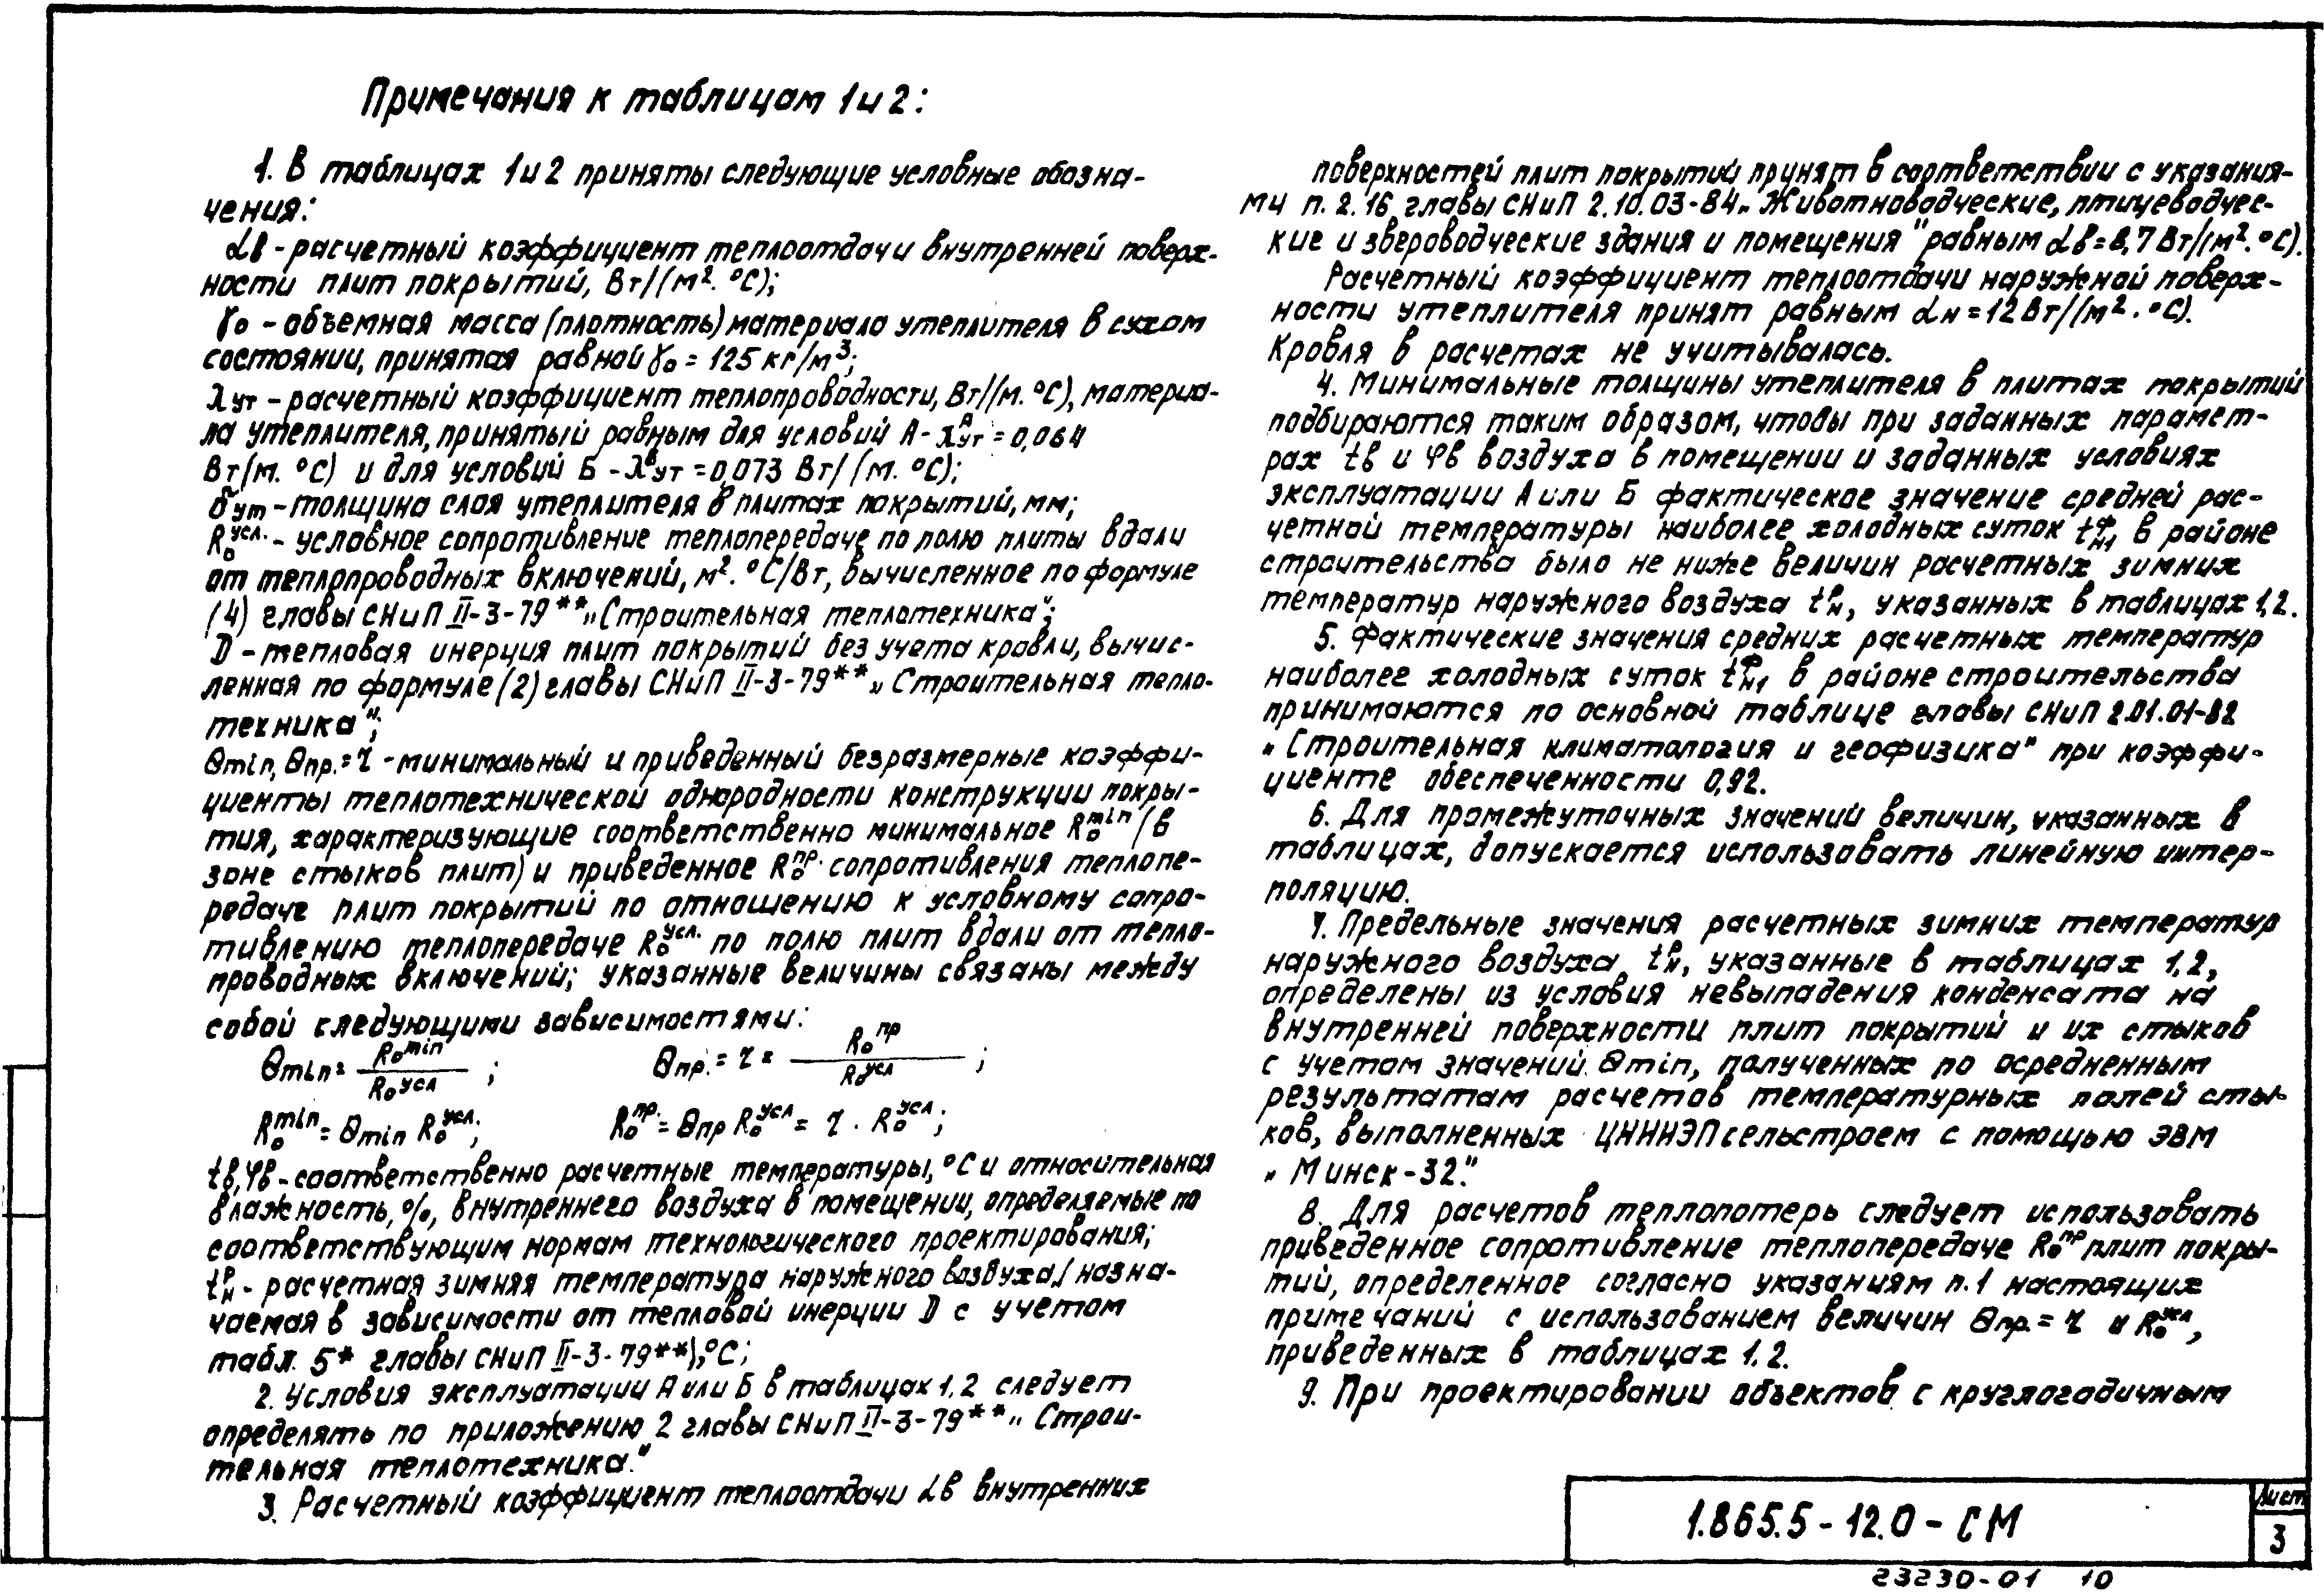 Примечания к таблицам 1 и 2:
1. В таблицах 1 и 2 приняты следующие условные обозна-
чения:
αв - расчетный коэффициент теплоотдачи внутренней поверх-
ности плит покрытий, Вт/(м². °С);
γо - объемная масса (плотность) материала утеплителя в сухом
состоянии, принятая равной γо = 125 кг/м³;
λут - расчетный коэффициент теплопроводности, Вт/(м. °С), материа-
ла утеплителя, принятый равным для условий А - λᴬут = 0,064
Вт/(м. °С) и для условий Б - λᴮут = 0,073 Вт/(м. °С);
δут - толщина слоя утеплителя в плитах покрытий, мм;
Rо усл. - условное сопротивление теплопередаче по полю плиты вдали
от теплопроводных включений, м². °С/Вт, вычисленное по формуле
(4) главы СНиП II-3-79** „Строительная теплотехника";
D - тепловая инерция плит покрытий без учета кровли, вычис-
ленная по формуле (2) главы СНиП II-3-79** „Строительная тепло-
техника";
θmin, θпр. = τ - минимальный и приведенный безразмерные коэффи-
циенты теплотехнической однородности конструкции покры-
тия, характеризующие соответственно минимальное Rо min (в
зоне стыков плит) и приведенное Rо пр. сопротивления теплопе-
редаче плит покрытий по отношению к условному сопро-
тивлению теплопередаче Rо усл. по полю плит вдали от тепло-
проводных включений; указанные величины связаны между
собой следующими зависимостями:
θmin = Rо min / Rо усл ; θпр. = τ = Rо пр / Rо усл ;
Rо min = θmin Rо усл.; Rо пр. = θпр Rо усл. = τ · Rо усл.;
tв, φв - соответственно расчетные температуры, °С и относительная
влажность, %, внутреннего воздуха в помещении, определяемые по
соответствующим нормам технологического проектирования;
tᴾн - расчетная зимняя температура наружного воздуха/ назна-
чаемая в зависимости от тепловой инерции D с учетом
табл. 5* главы СНиП II-3-79**), °С;
2. Условия эксплуатации А или Б в таблицах 1, 2 следует
определять по приложению 2 главы СНиП II-3-79** „Строи-
тельная теплотехника."
3. Расчетный коэффициент теплоотдачи αв внутренних
поверхностей плит покрытий принят в соответствии с указания-
ми п. 2.16 главы СНиП 2.10.03-84 „Животноводческие, птицеводчес-
кие и звероводческие здания и помещения" равным αв = 8,7 Вт/(м². °С).
Расчетный коэффициент теплоотдачи наружной поверх-
ности утеплителя принят равным αн = 12 Вт/(м². °С).
Кровля в расчетах не учитывалась.
4. Минимальные толщины утеплителя в плитах покрытий
подбираются таким образом, чтобы при заданных парамет-
рах tв и φв воздуха в помещении и заданных условиях
эксплуатации А или Б фактическое значение средней рас-
четной температуры наиболее холодных суток tᶲн1 в районе
строительства было не ниже величин расчетных зимних
температур наружного воздуха tᴾн, указанных в таблицах 1,2.
5. Фактические значения средних расчетных температур
наиболее холодных суток tᶲн1 в районе строительства
принимаются по основной таблице главы СНиП 2.01.01-82
„Строительная климатология и геофизика" при коэффи-
циенте обеспеченности 0,92.
6. Для промежуточных значений величин, указанных в
таблицах, допускается использовать линейную интер-
поляцию.
7. Предельные значения расчетных зимних температур
наружного воздуха tᴾн, указанные в таблицах 1,2,
определены из условия невыпадения конденсата на
внутренней поверхности плит покрытий и их стыков
с учетом значений θmin, полученных по осредненным
результатам расчетов температурных полей сты-
ков, выполненных ЦНИИЭПсельстроем с помощью ЭВМ
„Минск-32."
8. Для расчетов теплопотерь следует использовать
приведенное сопротивление теплопередаче Rо пр плит покры-
тий, определенное согласно указаниям п. 1 настоящих
примечаний с использованием величин θпр. = τ и Rо усл,
приведенных в таблицах 1, 2.
9. При проектировании объектов с круглогодичным
1.865.5-12.0-СМ
Лист
3
23230-01 10